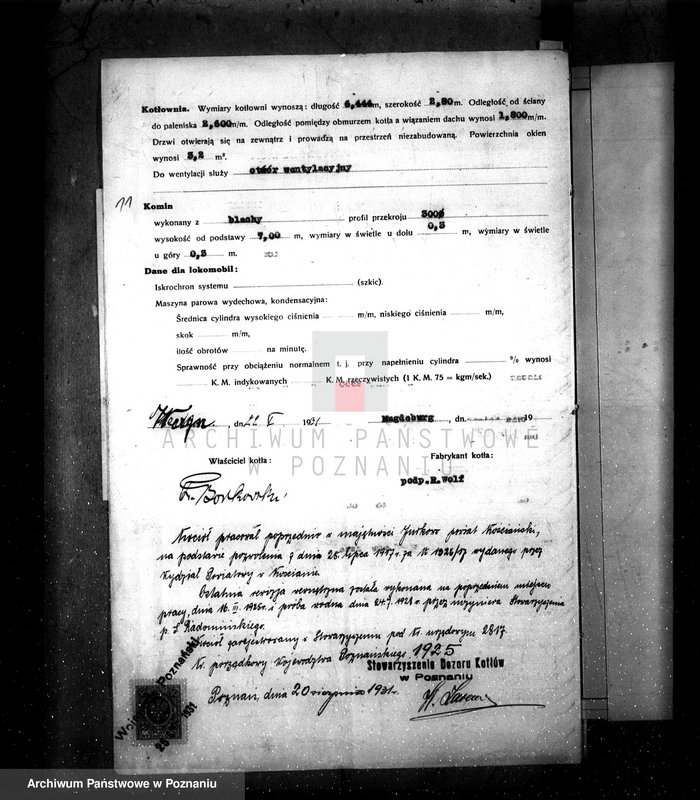 Kotłownia. Wymiary kotłowni wynoszą: długość 6,444m, szerokość 2,80 m. Odległość od ściany
do paleniska 2,600 m/m. Odległość pomiędzy obmurzem kotła a wiązaniem dachu wynosi 1,800 m/m.
Drzwi otwierają się na zewnątrz i prowadzą na przestrzeń niezabudowaną. Powierzchnia okien
wynosi 3,2 m².
Do wentylacji służy otwór wentylacyjny
11
Komin
wykonany z blachy profil przekroju 300ø
wysokość od podstawy 7,00 m, wymiary w świetle u dołu 0,3 m, wymiary w świetle
u góry 0,3 m.
Dane dla lokomobil:
Iskrochron systemu (szkic).
Maszyna parowa wydechowa, kondensacyjna:
Średnica cylindra wysokiego ciśnienia m/m, niskiego ciśnienia m/m,
skok m/m,
ilość obrotów na minutę.
Sprawność przy obciążeniu normalnem t. j. przy napełnieniu cylindra % wynosi
K. M. indykowanych K. M. rzeczywistych (1 K. M. 75 = kgm/sek.)
dn. 22 V 1931 Magdeburg, dn. 19
ARCHIWUM PAŃSTWOWE
W POZNANIU
Właściciel kotła: Fabrykant kotła:
podp. R. Wolf
Kocioł pracował poprzednio w majętności Jurkow powiat Kościański,
na podstawie pozwolenia z dnia 25 lipca 1907 r. za № 1326/07 wydanego przez
Wydział Powiatowy w Kościanie.
Ostatnia rewizja wewnętrzna została wykonana na poprzedniem miejscu
pracy, dnia 16. II. 1925 r. i próba wodna dnia 24. 1928 r. przez inżyniera Stowarzyszenia
p. Radomińskiego.
Kocioł zarejestrowany w Stowarzyszeniu pod № urzędowym 2817
№ porządkowy Województwa Poznańskiego 1925
Stowarzyszenie Dozoru Kotłów
w Poznaniu
Poznań, dnia 20 sierpnia 1931 r.
Archiwum Państwowe w Poznaniu